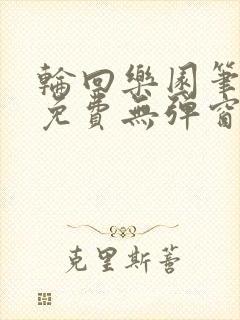 輪回樂園筆
免費無彈窗
克里斯蒂